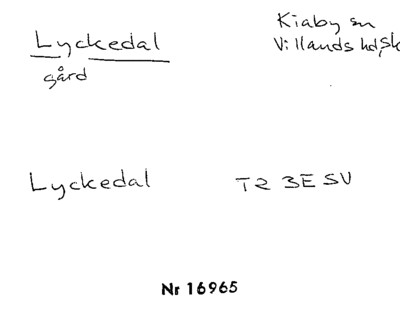 Lyckedal
Kiaby sn
Villands hd, Sk
gård
Lyckedal T2 3E SV
Nr 16965